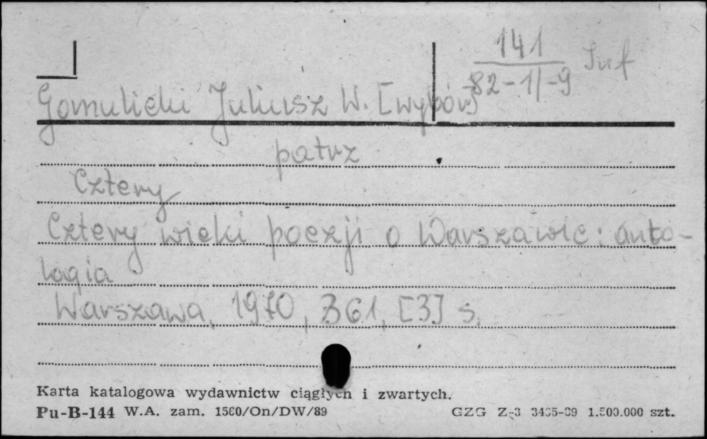 141 Inf
82-1/-9
Gomulicki Juliusz W. [wybór]
patrz
Cztery
Cztery wieki poezji o Warszawie: anto-
logia
Warszawa, 1970, 361, [3] s.
Karta katalogowa wydawnictw ciągłych i zwartych.
Pu-B-144 W.A. zam. 1580/On/DW/89 GZG Z-3 3435-89 1.500.000 szt.